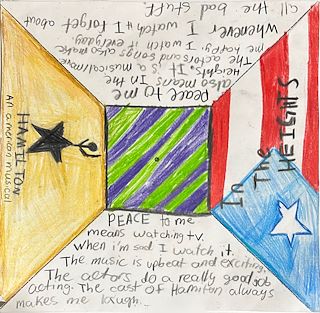 PEACE to me
means watching tv.
when i'm sad I watch it.
The music is upbeat and exciting.
The actors do a really good job
acting. The cast of Hamilton always
makes me laugh.
HAMILTON
An american musical
peace to me
also means In the
Heights. It is a musical/movie.
The actors and songs also make
me happy. I watch it everyday
whenever I watch it I forget about
all the bad stuff.
IN THE
HEIGHTS